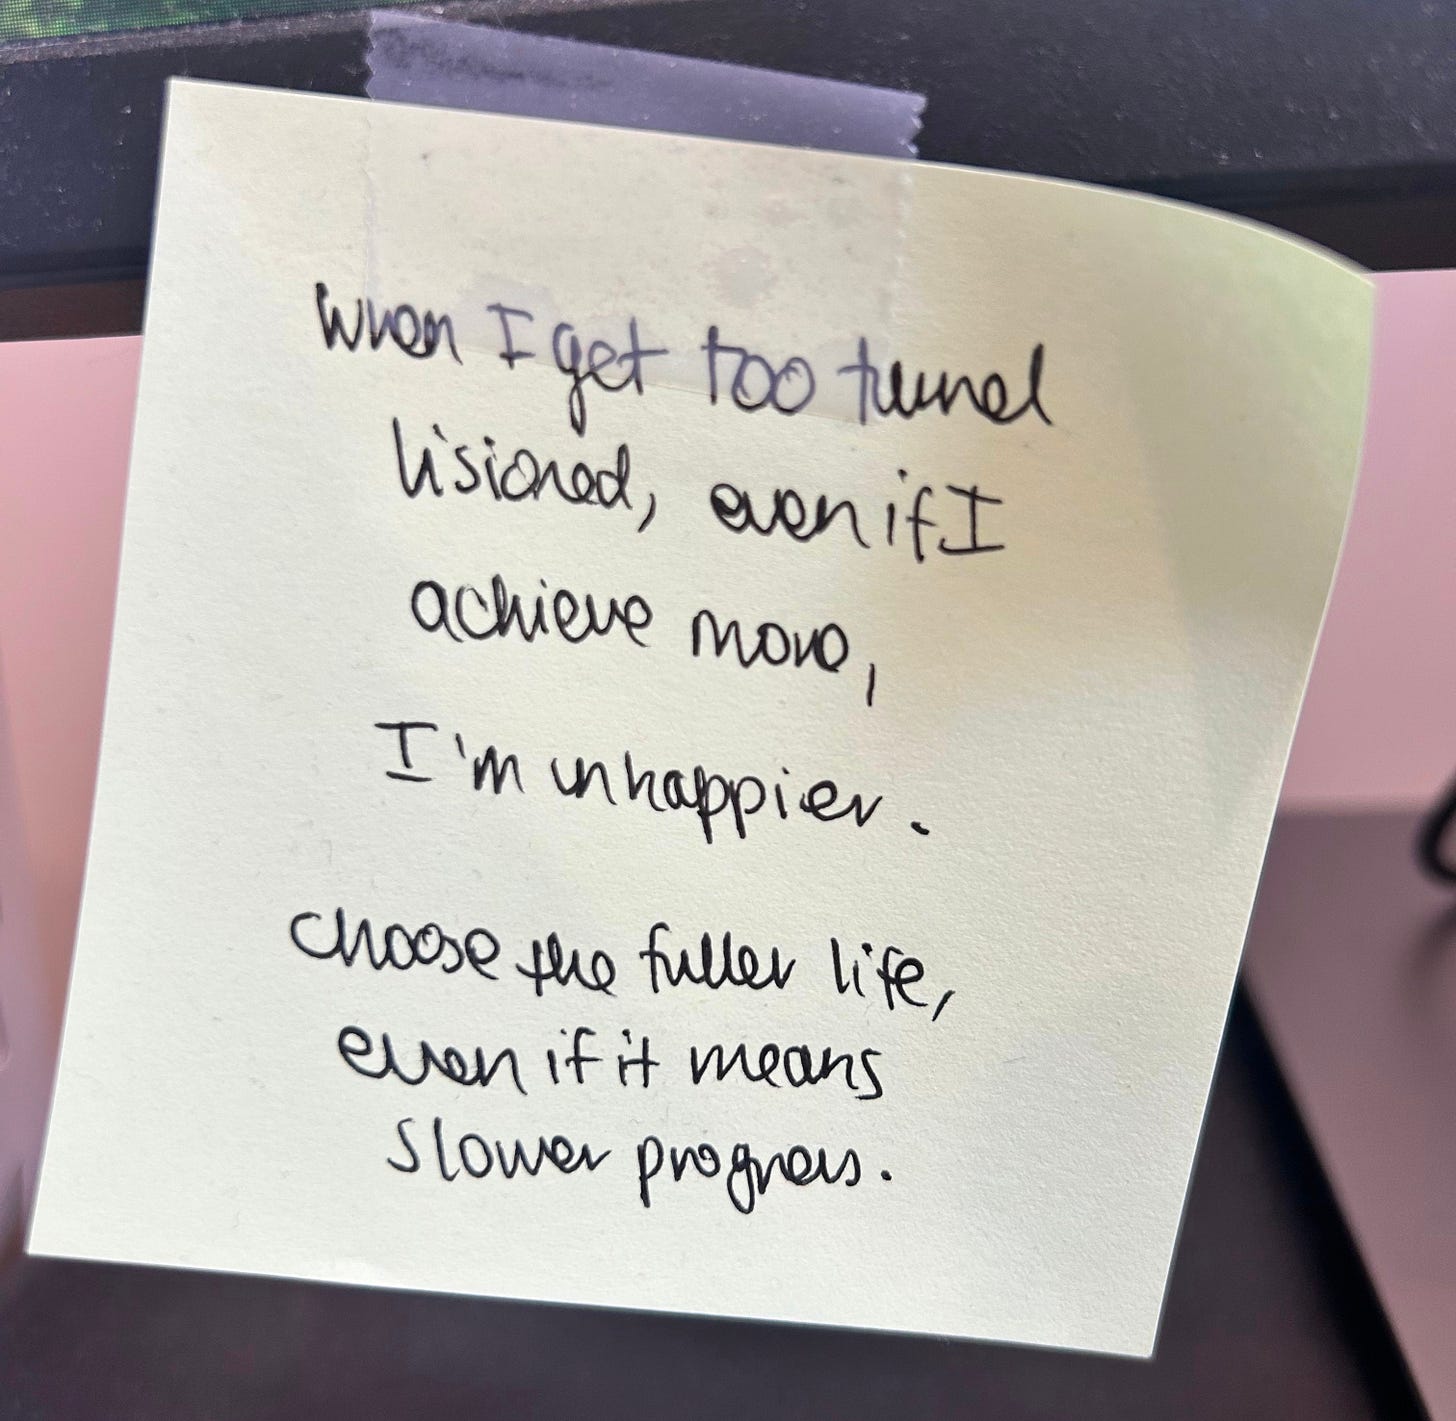 When I get too tunnel
visioned, even if I
achieve more,
I'm unhappier.
choose the fuller life,
even if it means
slower progress.